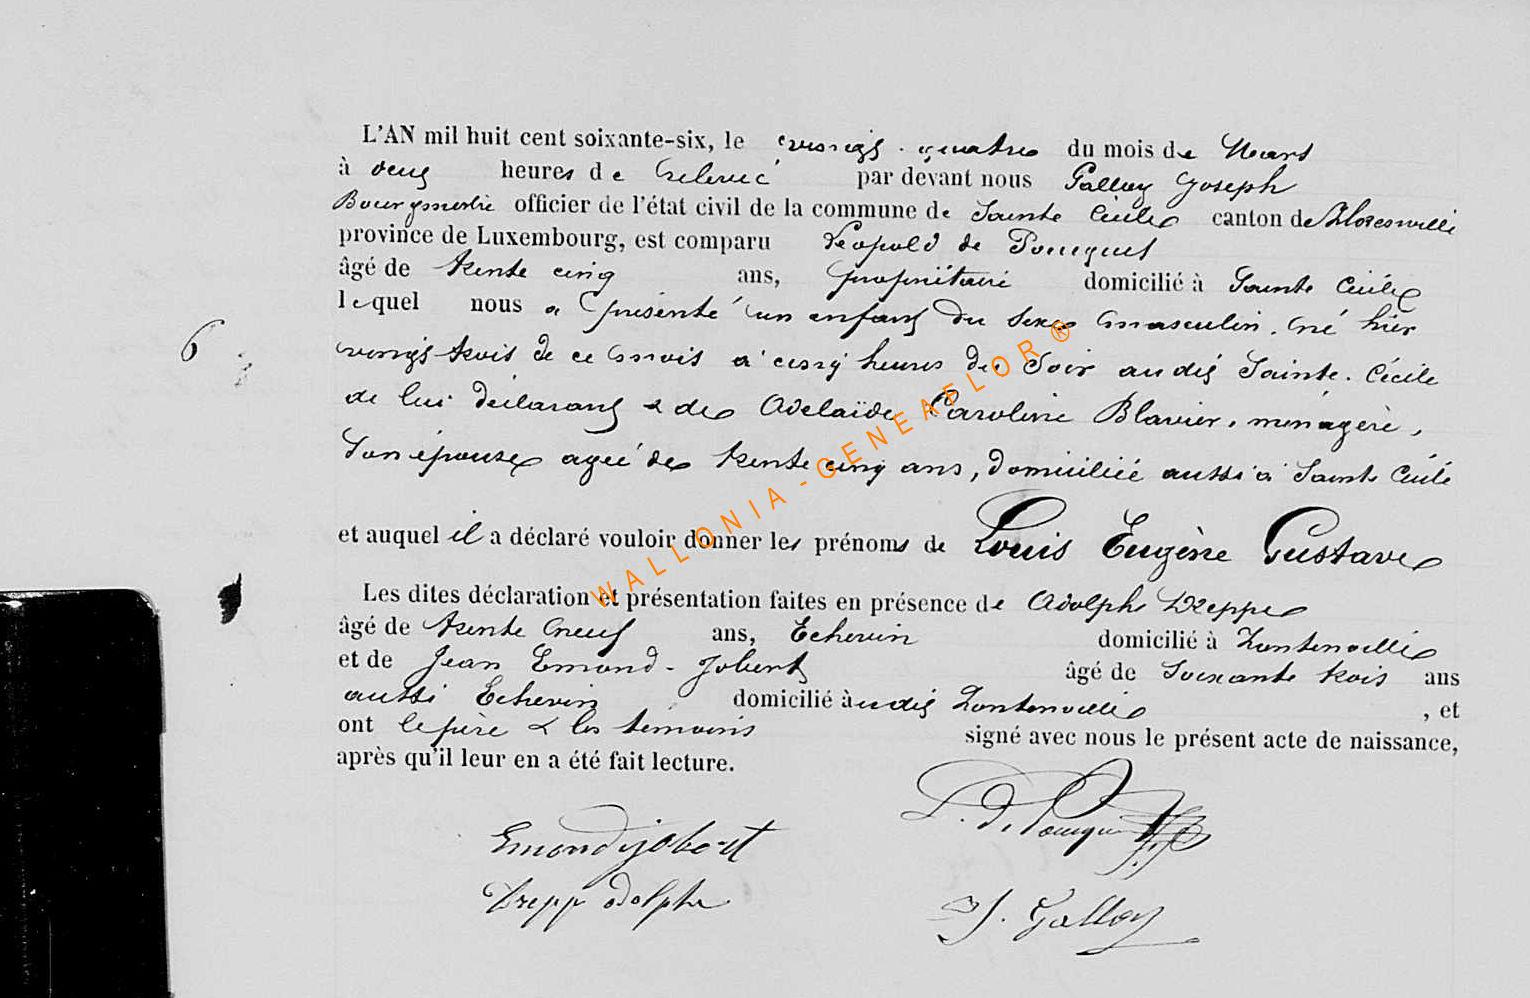 L'AN mil huit cent soixante-six, le vingt-quatre du mois de Mars
à deux heures de relevée par devant nous Galloy Joseph
Bourgmestre officier de l'état civil de la commune de Sainte Cécile canton de Florenville
province de Luxembourg, est comparu Léopold de Pouques
âgé de trente cinq ans, propriétaire domicilié à Sainte Cécile
lequel nous a présenté un enfant du sexe masculin, né hier
6
vingt trois de ce mois à cinq heures du soir au dit Sainte-Cécile
de lui déclarant & de Adelaïde Caroline Blavier, ménagère,
son épouse agée de trente cinq ans, domiciliée aussi à Sainte Cécile
et auquel il a déclaré vouloir donner les prénoms de Louis Eugène Gustave
Les dites déclaration et présentation faites en présence de Adolphe
âgé de trente neuf ans, Echevin domicilié à Fontenoille
et de Jean Emond-Jobert âgé de soixante trois ans
aussi Echevin domicilié à u dit Fontenoille, et
ont le père & les témoins signé avec nous le présent acte de naissance,
après qu'il leur en a été fait lecture.
L. de Pouques
Emond jobert
adolphe
J. Galloy
WALLONIA-GENEAFLOR®